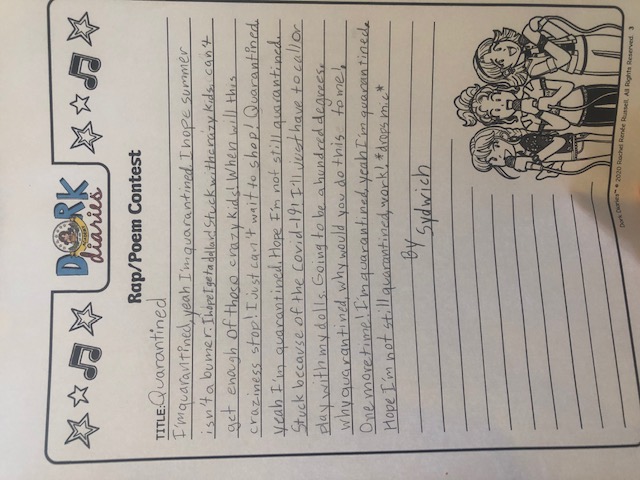 DORK
diaries
Rap/Poem Contest
TITLE: Quarantined
I'm quarantined, yeah I'm quarantined. I hope summer
isn't a bumer. I hope I get a dduo! Stuck with crazy kids. can't
get enough of those crazy kids! When will this
craziness stop! I just can't wait to shop! Quarantined
yeah I'm quarantined. Hope I'm not still quarantined.
Stuck because of the Covid-19! I'll just have to call or
play with my dolls. Going to be a hundred degrees.
Why quarantined, why would you do this to me!
One more time! I'm quarantined, yeah I'm quarantined.
Hope I'm not still quarantined, work! *drops mic*
By
Sydwich
Dork Diaries™ © 2020 Rachel Renée Russell. All Rights Reserved. 3